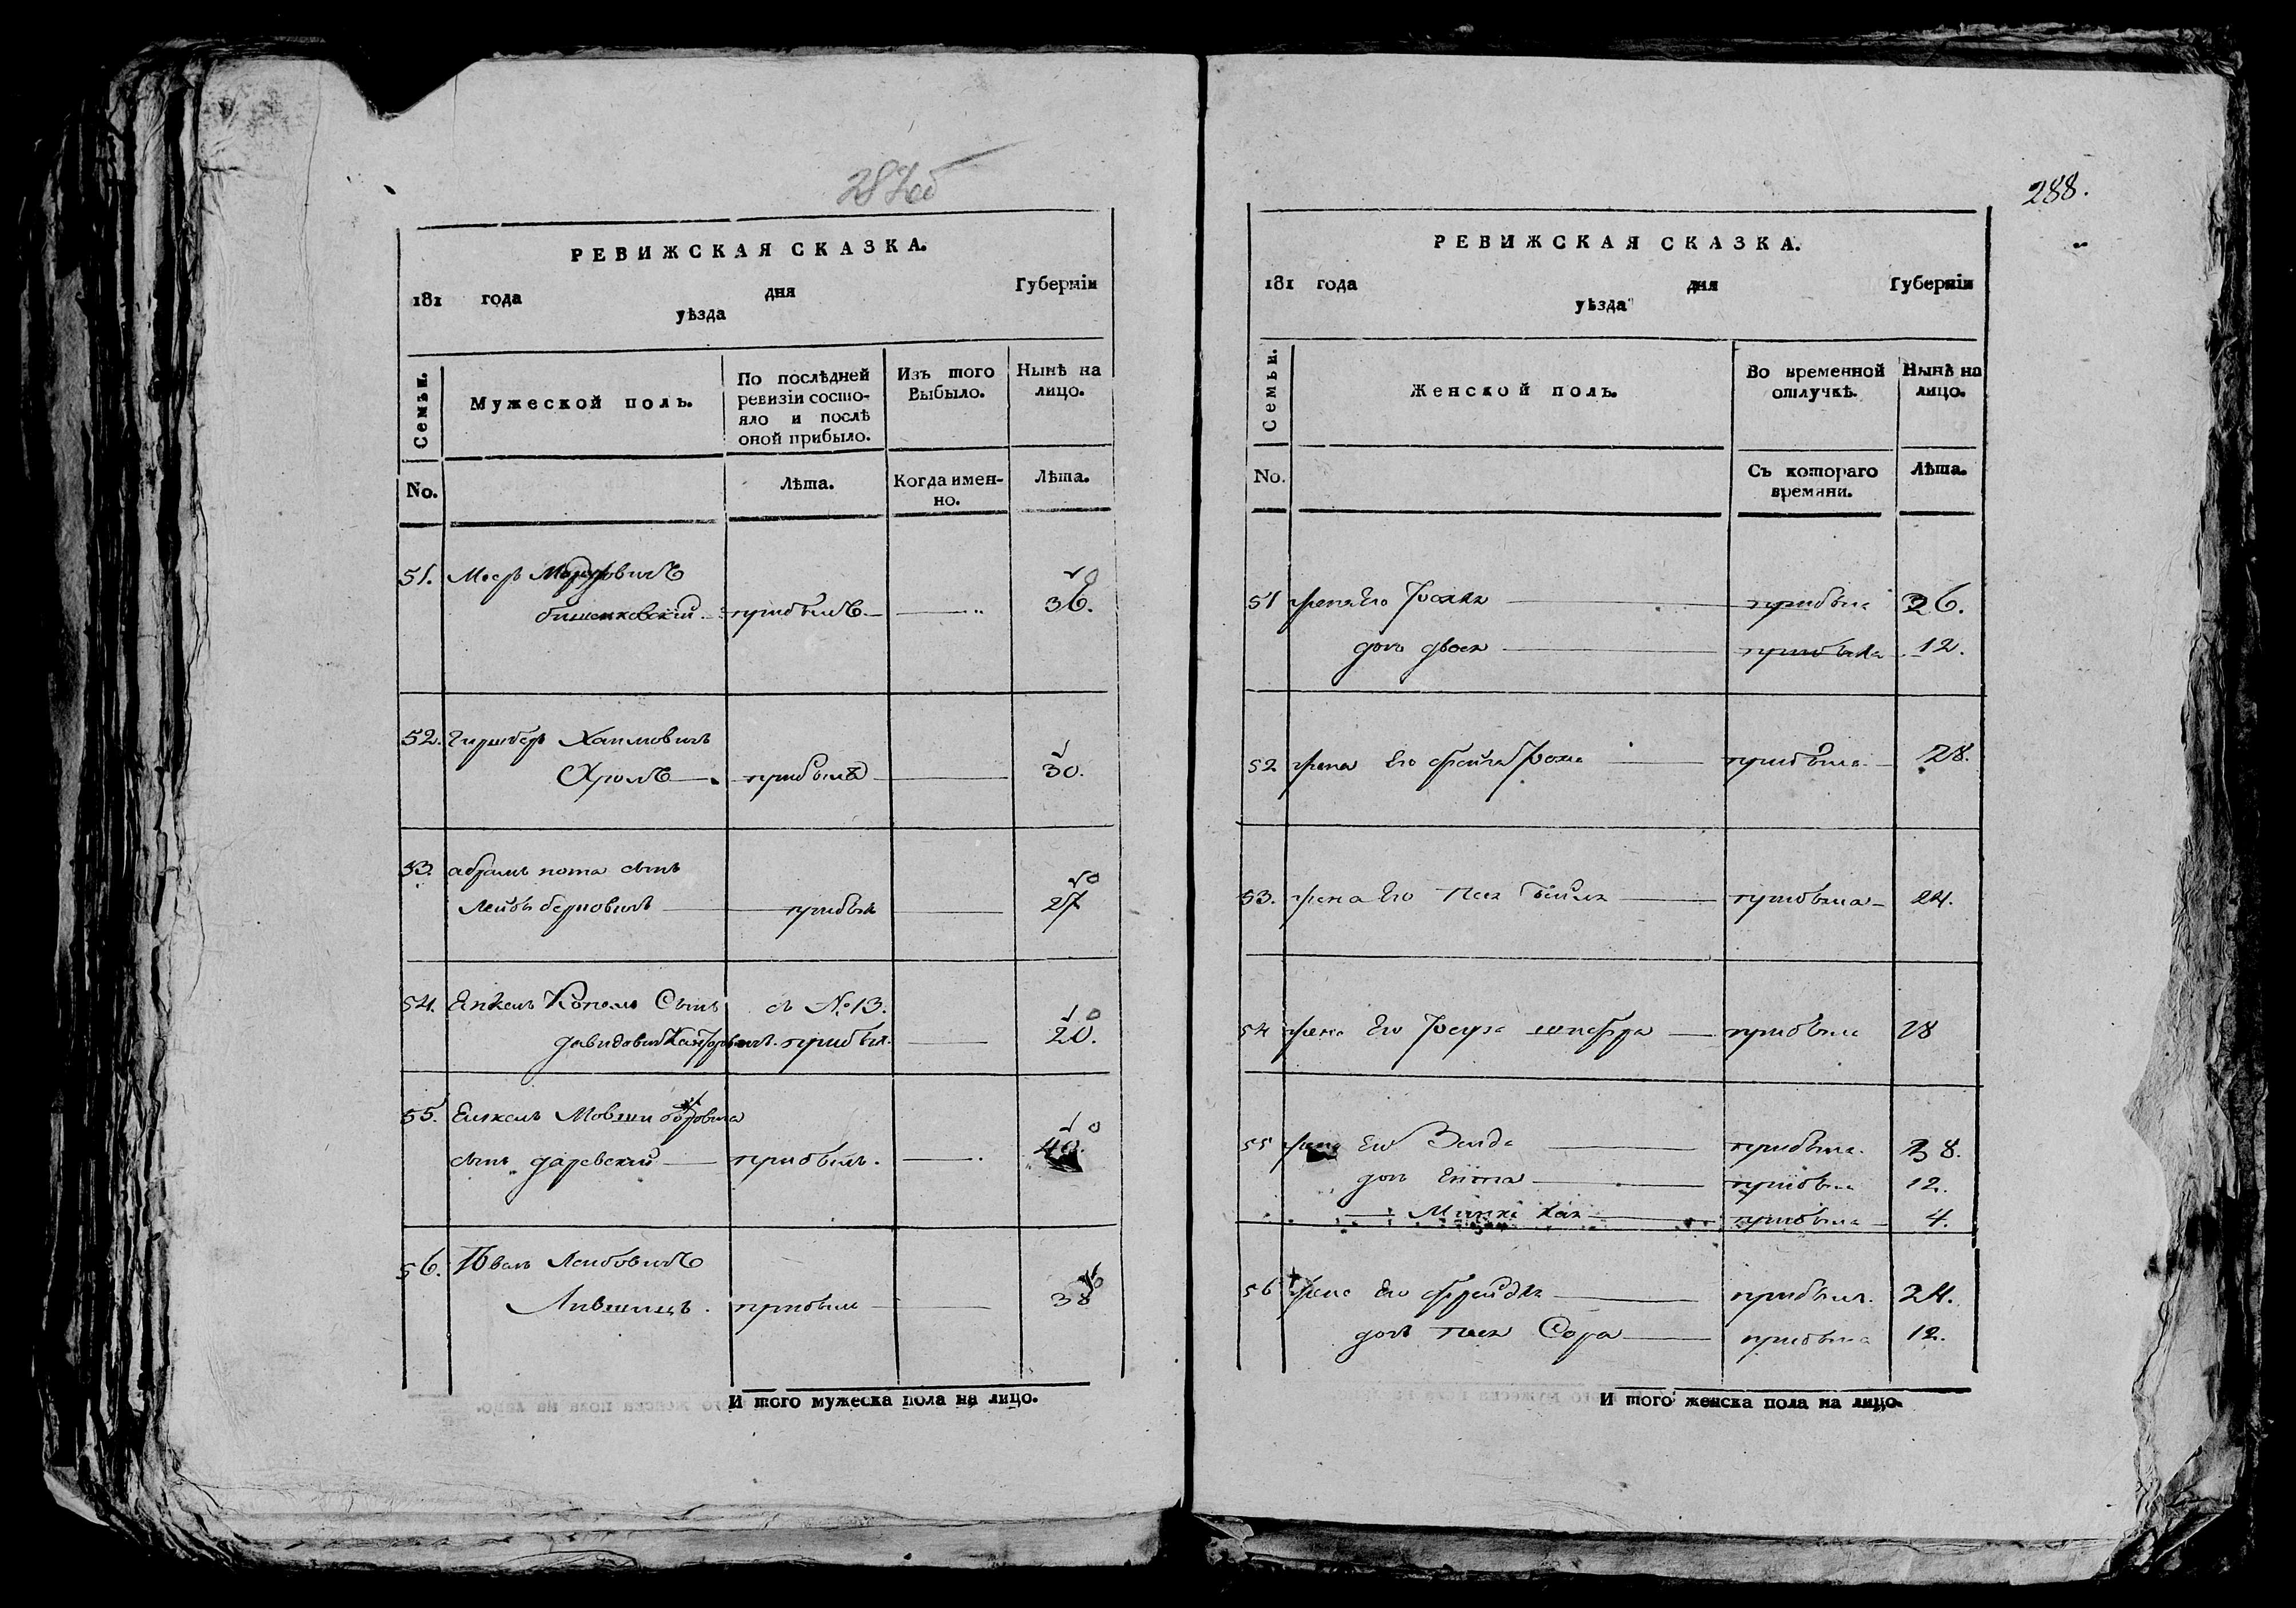 287об
РЕВИЖСКАЯ СКАЗКА.
181 года дня Губерніи
уѣзда
Семьи.
Мужеской полъ.
По послѣдней ревизіи состояло и послѣ оной прибыло.
Изъ того Выбыло.
Нынѣ на лицо.
No.
Лѣта.
Когда именно.
Лѣта.
51. Мееръ
бишенковскій прибылъ 36.
52. Гиршберъ Хаимовичъ
прибылъ 30.
53. абрамъ нота сынъ
Лейбы берковичъ прибылъ 27
54. Енкель Копель Сынъ съ No 13.
давидовичъ прибыл. 20.
55. Енкель Мовши
сынъ даревский прибылъ. 40.
56. Лейбовичъ
Лившицъ. прибылъ 38
288.
РЕВИЖСКАЯ СКАЗКА.
181 года дня Губерніи
уѣзда
Семьи.
Женской полъ.
Во временной отлучкѣ.
Нынѣ на лицо.
No.
Съ котораго времяни.
Лѣта.
51 жена Его прибыла 26.
дочь двося прибыла 12.
52 жена Его фейга прибыла 28.
53. жена Его Песя бейля прибыла 24.
54 жена Его прибыла 28
55 жена Его Зелда прибыла. 38.
дочь прибыла 12.
Хая прибыла 4.
56 жена Его фрейдя прибыла. 24.
дочь песя Сора прибыла 12.
И того мужеска пола на лицо.
И того женска пола на лицо.